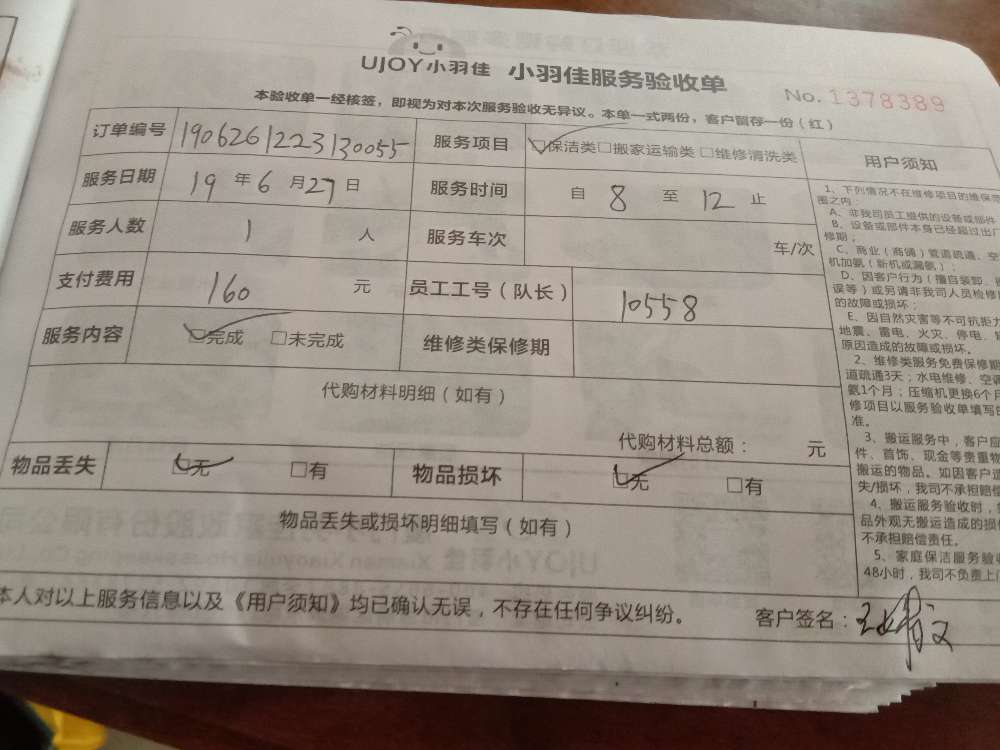 UJOY小羽佳 小羽佳服务验收单
No. 1378389
本验收单一经核签，即视为对本次服务验收无异议。本单一式两份，客户留存一份（红）
订单编号 190626122313 0055 服务项目 ☑保洁类□搬家运输类□维修清洗类
服务日期 19 年 6 月 27 日 服务时间 自 8 至 12 止
服务人数 1 人 服务车次 车/次
支付费用 160 元 员工工号（队长） 10558
服务内容 ☑完成 □未完成 维修类保修期
代购材料明细（如有）
代购材料总额： 元
物品丢失 ☑无 □有 物品损坏 ☑无 □有
物品丢失或损坏明细填写（如有）
本人对以上服务信息以及《用户须知》均已确认无误，不存在任何争议纠纷。 客户签名：
用户须知
1、下列情况不在维修项目的维保范
围之内：
A、非我司员工提供的设备或部件
B、设备或部件本身已经超过出厂
修期；
C、商业（商铺）管道疏通、空
机加氨（新机或漏氨）；
D、因客户行为（擅自装卸、
误等）或另请非我司人员检修
的故障或损坏；
E、因自然灾害等不可抗拒力
地震、雷电、火灾、停电、
原因造成的故障或损坏。
2、维修类服务免费保修期
道疏通3天；水电维修、空调
氨1个月；压缩机更换6个月
修项目以服务验收单填写的
准。
3、搬运服务中，客户应
件、首饰、现金等贵重物
搬运的物品。如因客户
失/损坏，我司不承担赔偿
4、搬运服务验收时，
品外观无搬运造成的损
不承担赔偿责任。
5、家庭保洁服务验收
48小时，我司不负责上